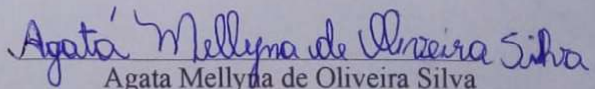 Agatá Mellyna de Oliveira Silva
Agata Mellyna de Oliveira Silva